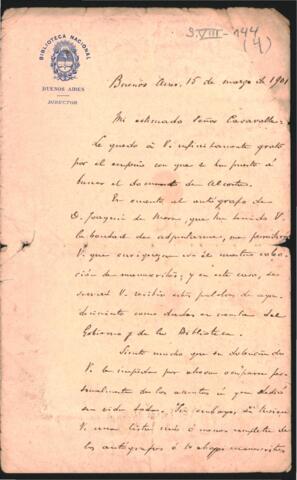 S.VIII-144
(4)
BIBLIOTECA NACIONAL
BUENOS AIRES
DIRECTOR
Buenos Aires, 15 de marzo de 1901
Mi estimado Señor Casavalle:
Le quedo á V. infinitamente grato
por el empeño con que se ha puesto á
buscar el de Alcorta.
En cuanto al autógrafo de
D. Joaquin de Mora, que ha tenido V.
la bondad de adjuntarme, me permitirá
V. que enriquezca con él nuestra colec-
ción de manuscritos; y en este caso,
V. recibir estas palabras de agra-
decimiento como dadas en nombre del
Gobierno y de la Biblioteca.
Siento mucho que su dolencia
V. le impida por ahora ocuparse per-
sonalmente de los asuntos á que dedicó
su vida toda. Sin embargo, si
V. una lista más ó menos completa de
los autógrafos ó manuscritos